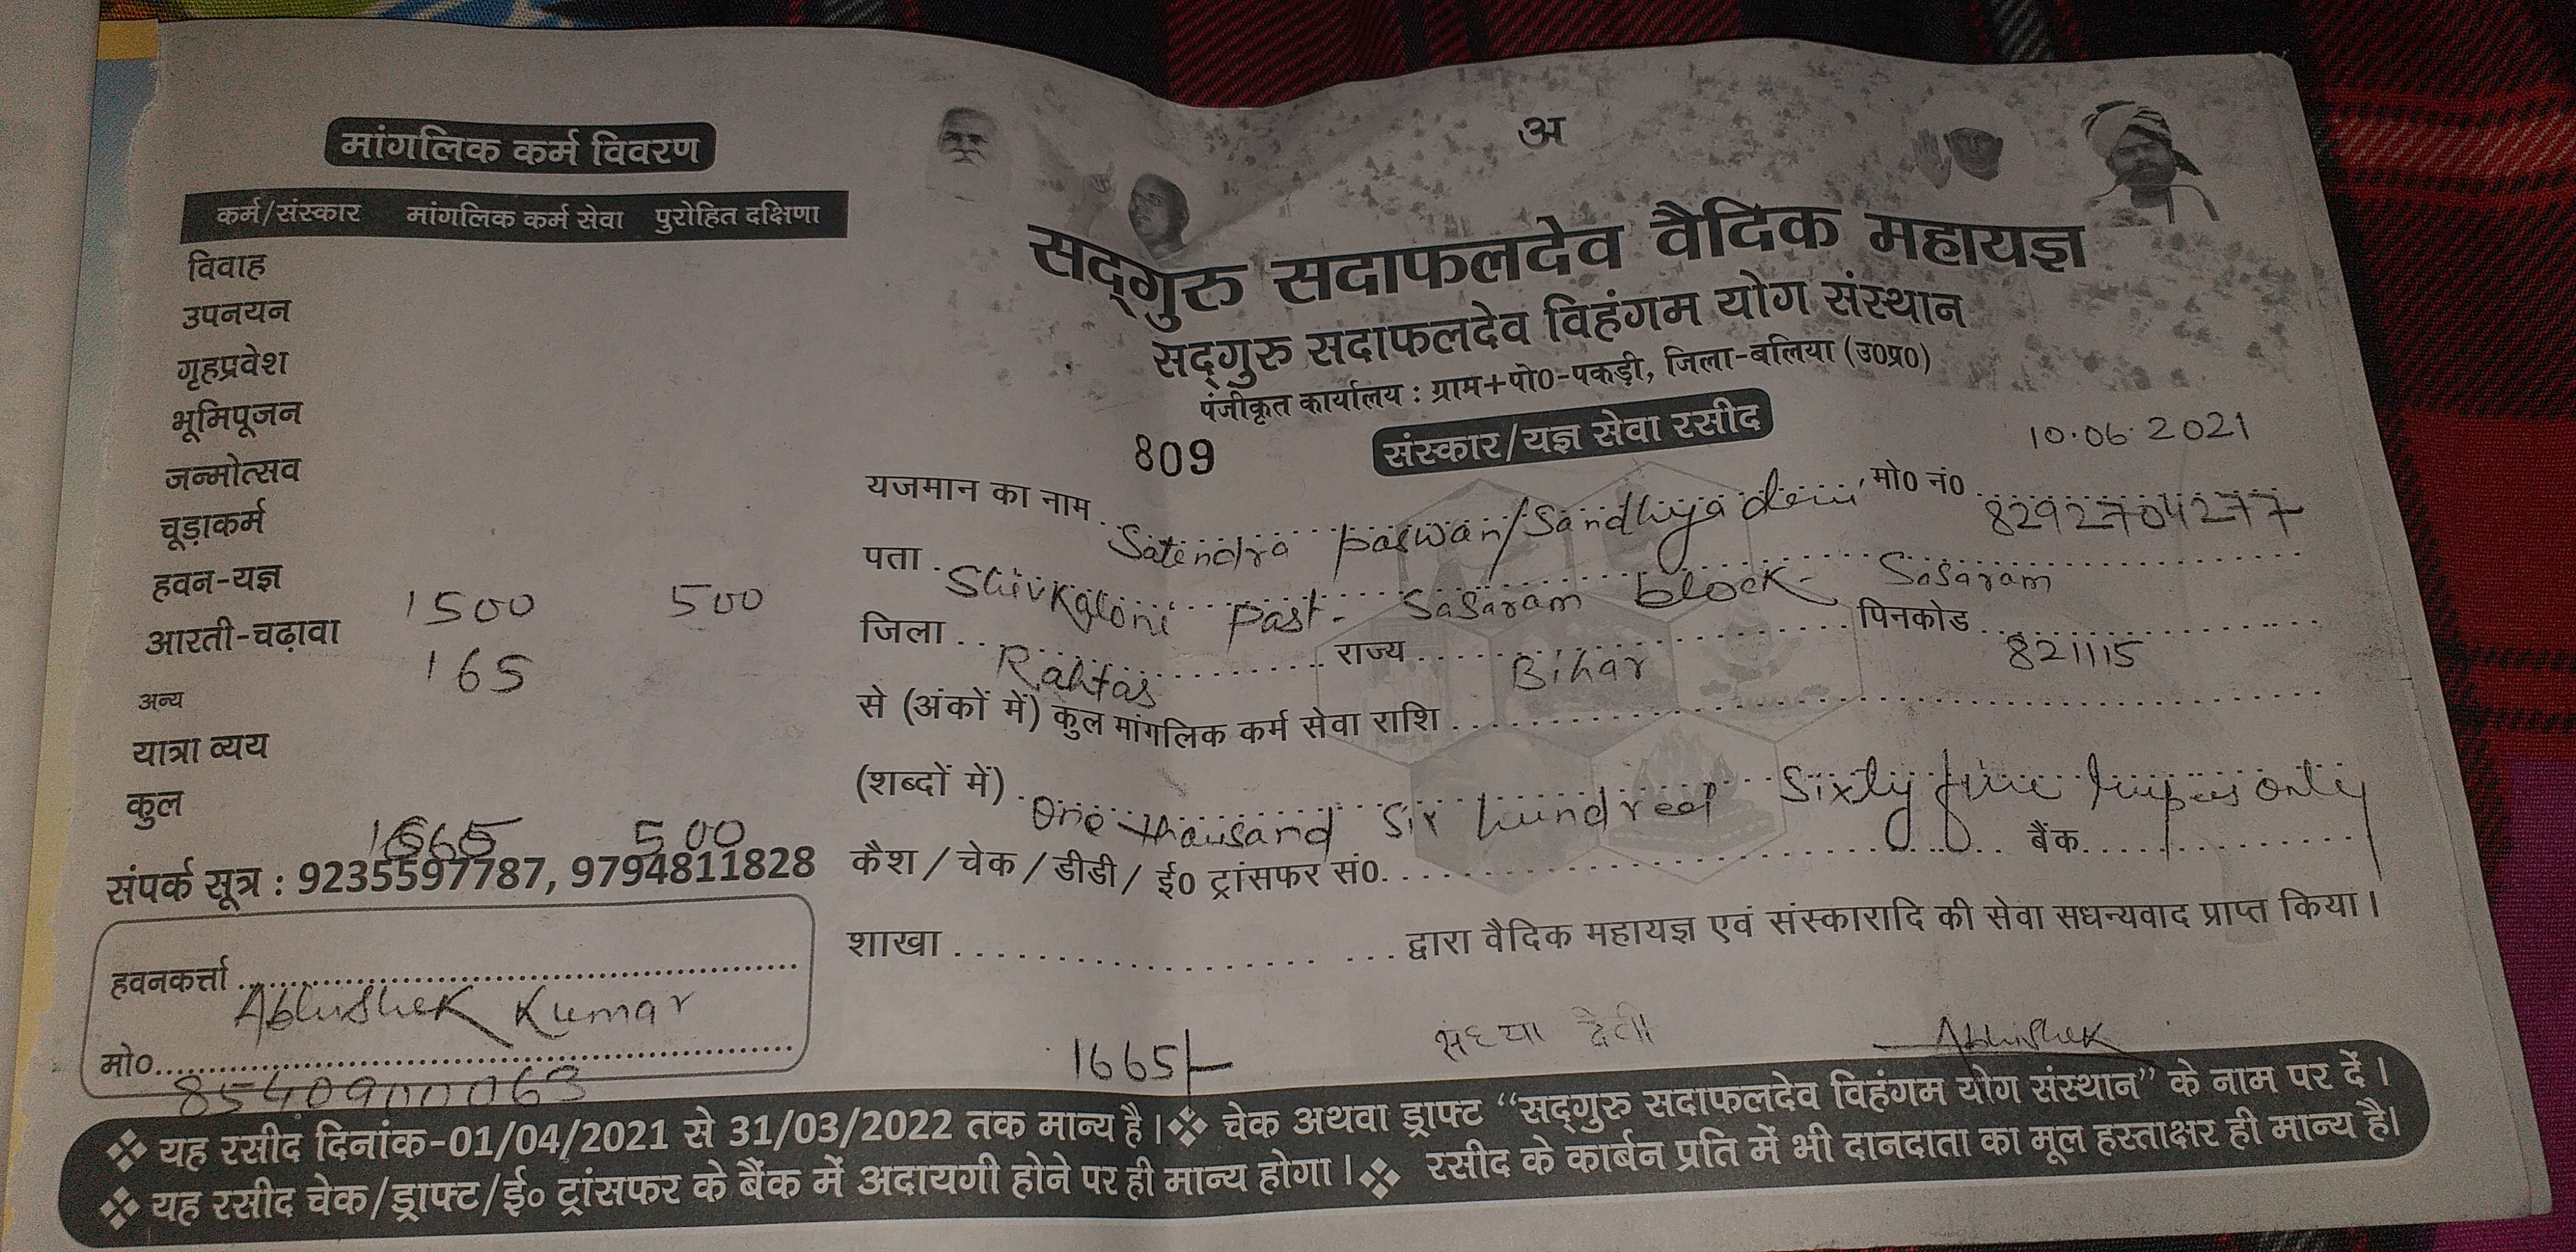 मांगलिक कर्म विवरण
कर्म/संस्कार मांगलिक कर्म सेवा पुरोहित दक्षिणा
विवाह
उपनयन
गृहप्रवेश
भूमिपूजन
जन्मोत्सव
चूड़ाकर्म
हवन-यज्ञ 1500 500
आरती-चढ़ावा 165
अन्य
यात्रा व्यय
कुल 1665 500
संपर्क सूत्र : 9235597787, 9794811828
हवनकर्त्ता Abhishek Kumar
मो० 8540900063
अ
सद्गुरु सदाफलदेव वैदिक महायज्ञ
सद्गुरु सदाफलदेव विहंगम योग संस्थान
पंजीकृत कार्यालय : ग्राम+पो0-पकड़ी, जिला-बलिया (उ0प्र0)
809 संस्कार/यज्ञ सेवा रसीद 10.06.2021
यजमान का नाम Satendra paswan/Sandhya devi मो0 नं0 8292704277
पता Shivkaloni Past- Sasaram block- Sasaram
जिला Rahtas राज्य Bihar पिनकोड 821115
से (अंकों में) कुल मांगलिक कर्म सेवा राशि
(शब्दों में) One thausand Six hundred Sixty five rupees only
कैश / चेक / डीडी / ई0 ट्रांसफर सं0. बैंक
शाखा द्वारा वैदिक महायज्ञ एवं संस्कारादि की सेवा सधन्यवाद प्राप्त किया।
1665/- संध्या देवी Abhishek
❖ यह रसीद दिनांक-01/04/2021 से 31/03/2022 तक मान्य है। ❖ चेक अथवा ड्राफ्ट "सद्गुरु सदाफलदेव विहंगम योग संस्थान" के नाम पर दें।
❖ यह रसीद चेक/ड्राफ्ट/ई० ट्रांसफर के बैंक में अदायगी होने पर ही मान्य होगा। ❖ रसीद के कार्बन प्रति में भी दानदाता का मूल हस्ताक्षर ही मान्य है।